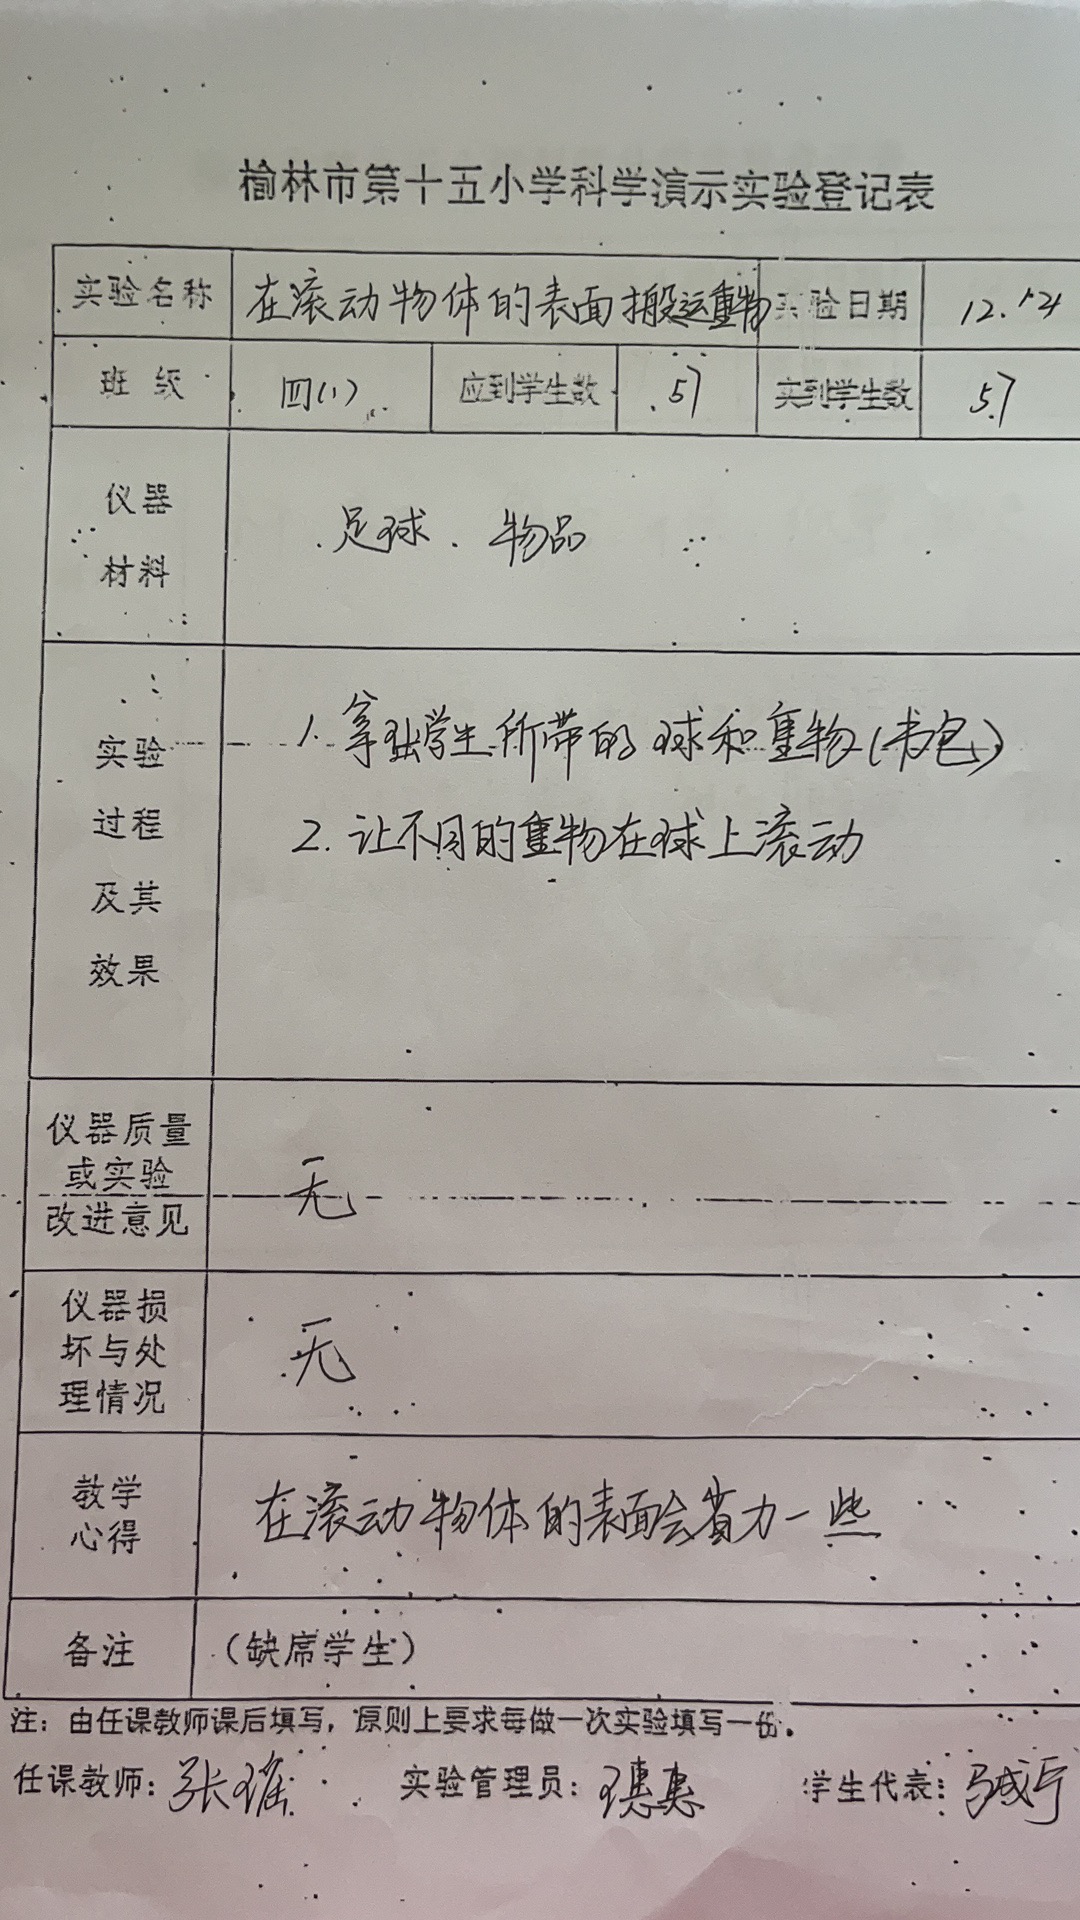 榆林市第十五小学科学演示实验登记表
实验名称 在滚动物体的表面搬运重物 实验日期 12.14
班级 四(1) 应到学生数 57 实到学生数 57
仪器
材料
足球、物品
实验
过程
及其
效果
1. 拿出学生所带的球和重物(书包)
2. 让不同的重物在球上滚动
仪器质量
或实验
改进意见
无
仪器损
坏与处
理情况
无
教学
心得
在滚动物体的表面会省力一些
备注 (缺席学生)
注：由任课教师课后填写，原则上要求每做一次实验填写一份。
任课教师：张瑶 实验管理员： 学生代表：